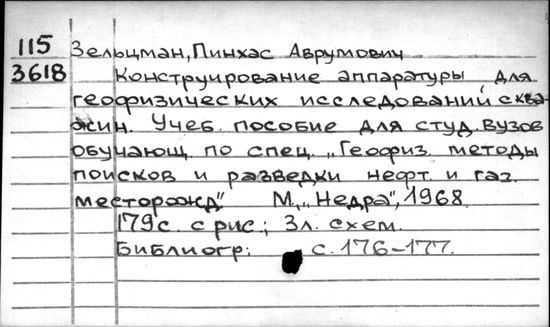 115 Зельцман, Пинхас Аврумович
3618 Конструирование аппаратуры для
геофизических исследований сква-
жин. Учеб. пособие для студ. вузов
обучающ. по спец. „Геофиз. методы
поисков и разведки нефт. и газ.
месторожд." М., „Недра", 1968.
179 с. с рис.; 3 л. схем.
Библиогр: с. 176-177.